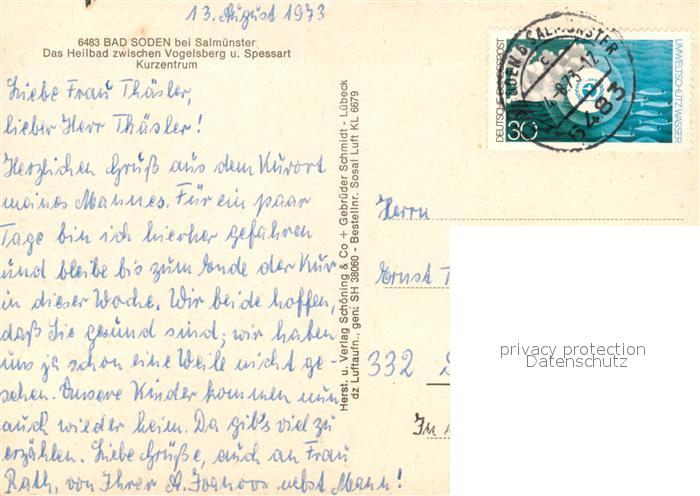 13. August 1973
6483 BAD SODEN bei Salmünster
Das Heilbad zwischen Vogelsberg u. Spessart
Kurzentrum
Liebe Frau Thäsler,
lieber Herr Thäsler!
Herzlichen Gruß aus dem Kurort
meines Mannes. Für ein paar
Tage bin ich hierher gefahren
und bleibe bis zum Ende der Kur
in dieser Woche. Wir beide hoffen,
daß Sie gesund sind; wir haben
uns ja schon eine Weile nicht ge-
sehen. Unsere Kinder kommen nun
auch wieder heim. Da gib's viel zu
erzählen. Liebe Grüße, auch an Frau
Rath, von Ihrer A. nebst Mann!
Herst. u. Verlag Schöning & Co + Gebrüder Schmidt - Lübeck
dz Luftaufn., gen: SH 38060 - Bestellnr. Sosal Luft KL 6679
DEUTSCHE BUNDESPOST
30
UMWELTSCHUTZ: WASSER
SODEN B SALMÜNSTER
c
-8.73-12
6483
Herrn
Ernst T
332
In
privacy protection
Datenschutz